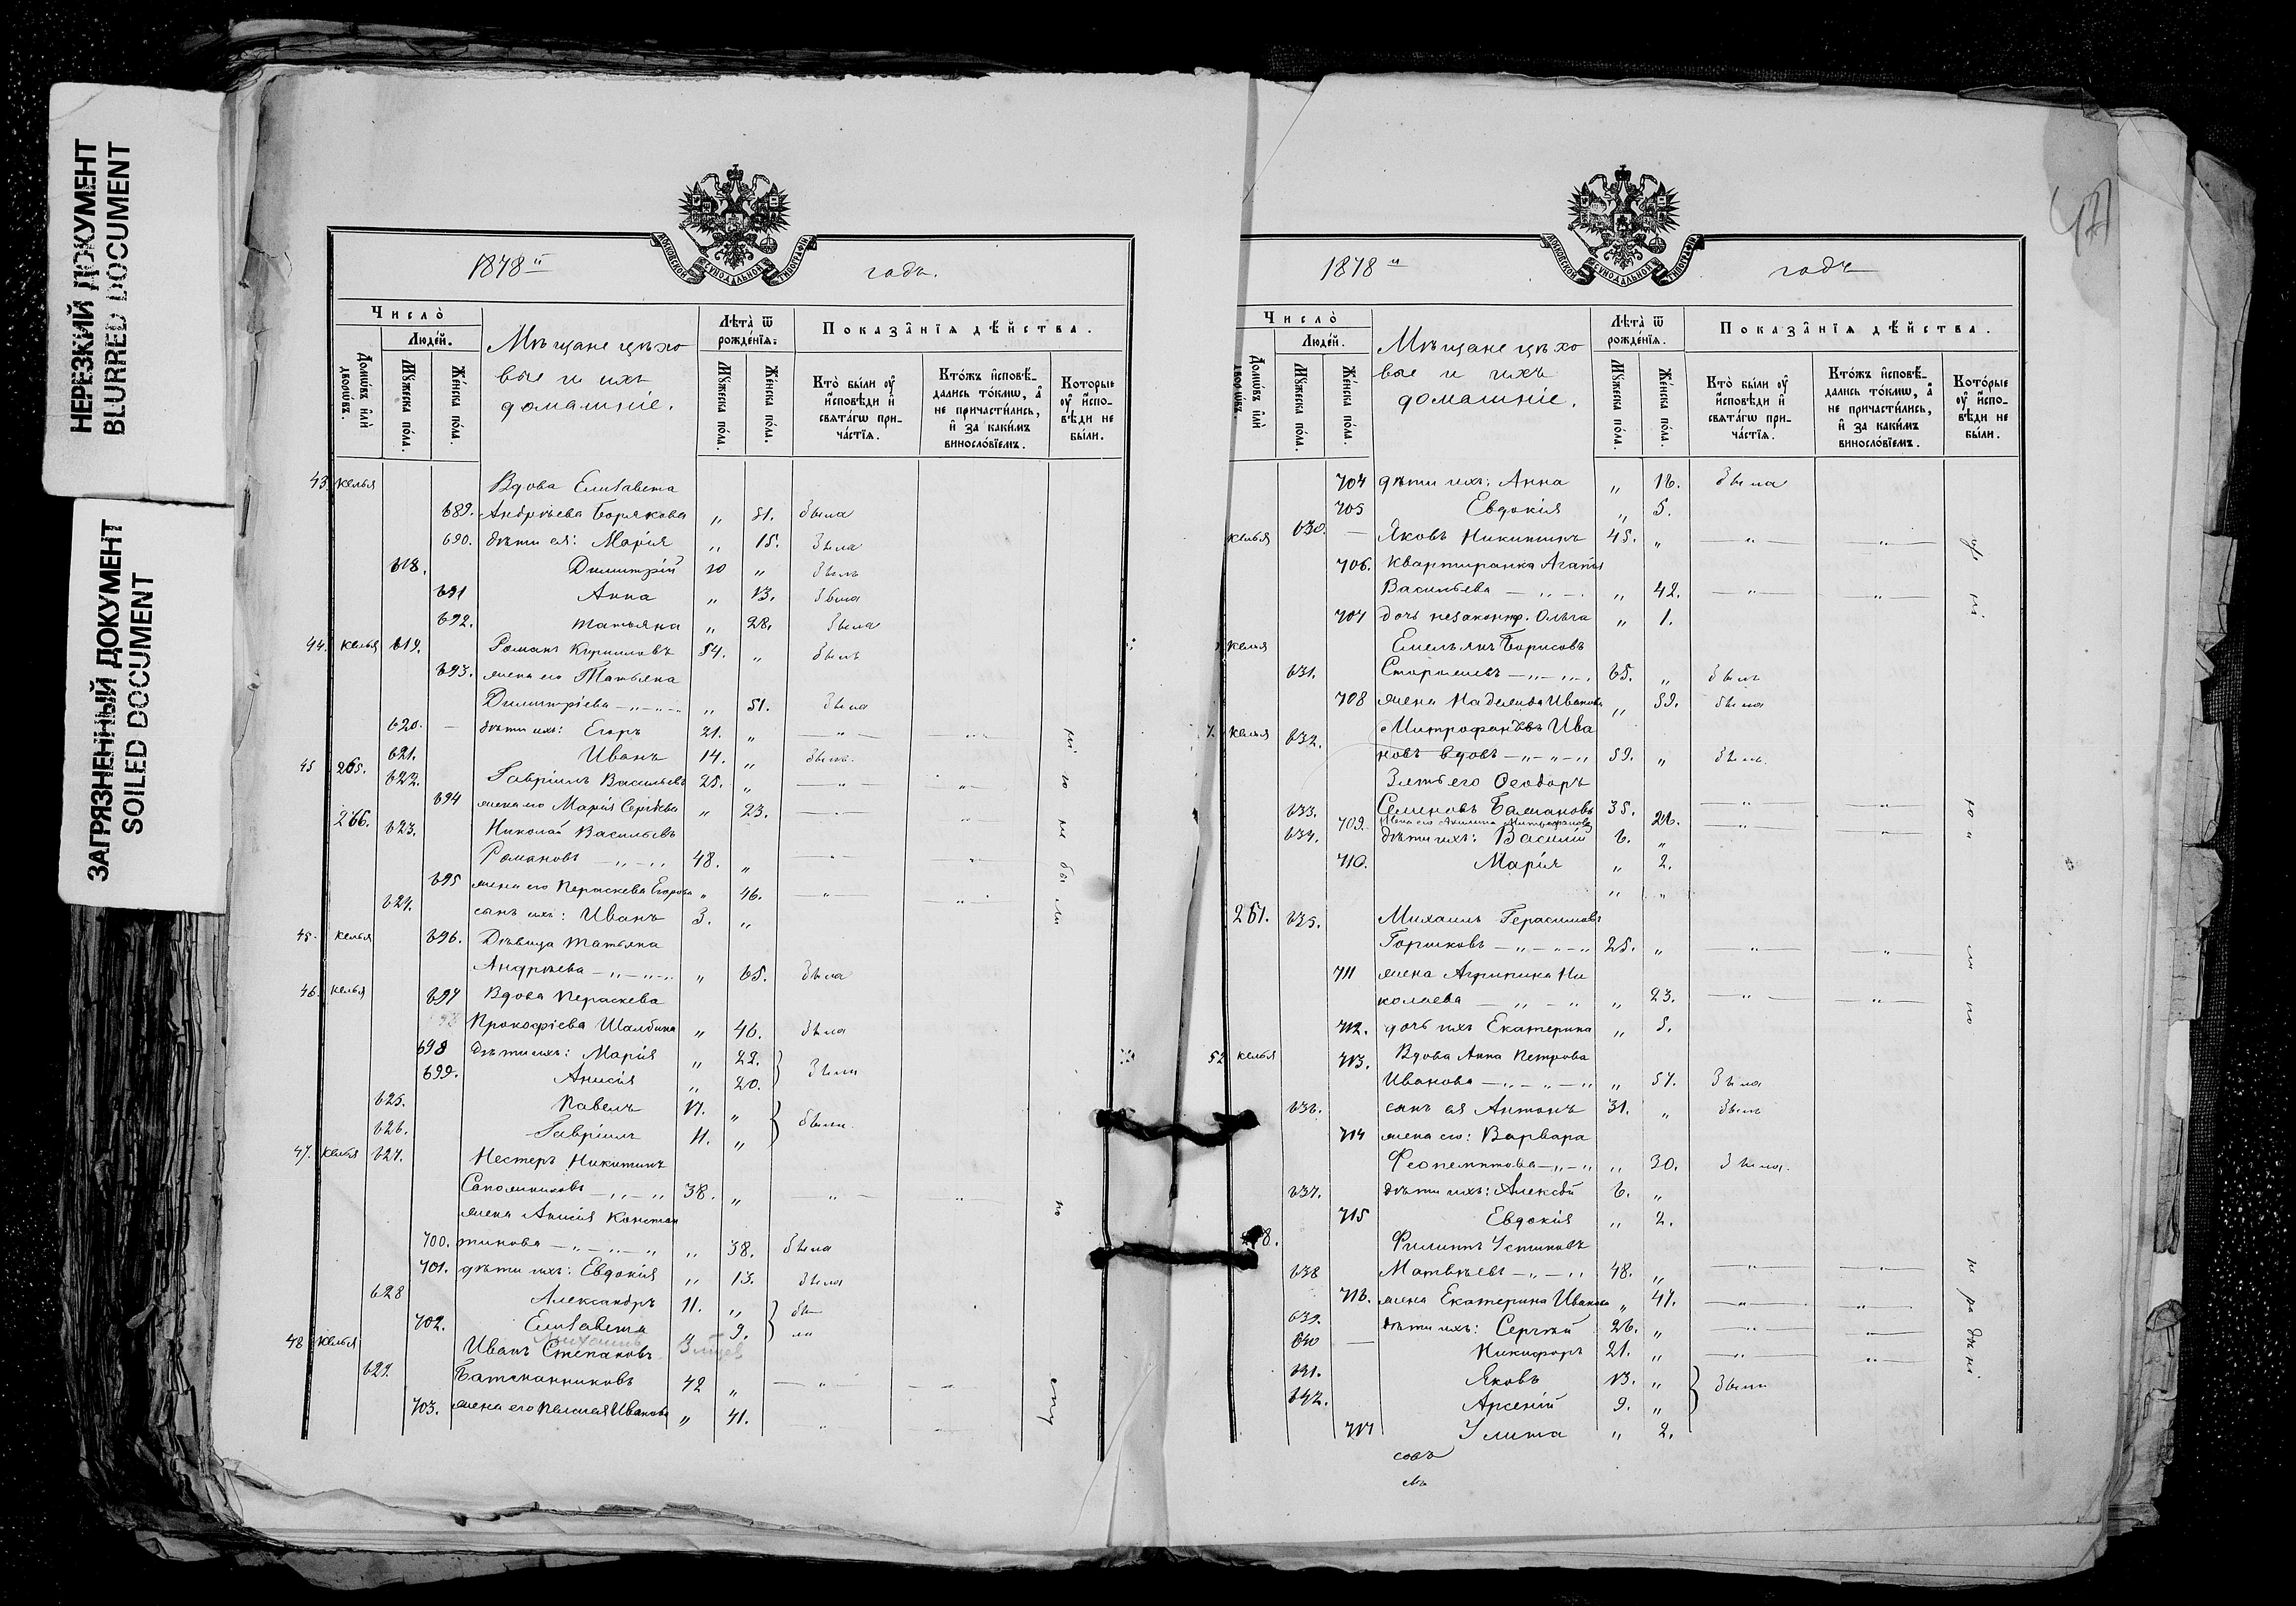 НЕРЕЗКИЙ ДОКУМЕНТ
BLURRED DOCUMENT
ЗАГРЯЗНЕННЫЙ ДОКУМЕНТ
SOILED DOCUMENT
МОСКОВСКОЙ СѴНОДАЛЬНОЙ ТИПОГРАФІИ
1878й годъ.
Число̀
Людей.
Домѡвъ или дворѡвъ.
Мꙋжеска пола.
Женска пола.
Мѣщане цѣхо
вые и ихъ
домашніе.
Лѣта ѿ рожденїѧ.
Мꙋжеска пола.
Женска пола.
Показанїѧ дѣйства.
Кто были оу исповѣди и свѧтагѡ причастїѧ.
Ктожъ исповѣдались токмѡ, а не причастились, и за какимъ винословїемъ.
Которые оу исповѣди не были.
43. келья Вдова Елисавета
689. Андреева Борякова „ 51. была
690. дѣти ея: Марія „ 15. была
618. Димитрій 20 „ былъ
691 Анна „ 13. была
692. Татьяна „ 28. была
44. келья 619. Романъ Кирилловъ 54. „ былъ
693. жена его Татьяна
Димитріева „ 51. была
620. — дѣти ихъ: Егоръ 21. „ — „ —
621. Иванъ 14. „ былъ.
45 265. 622. Гавріилъ Васильевъ 25. „ — „ —
694 жена его Марія Сергѣева „ 23.
266. 623. Николай Васильевъ
Романовъ — „ — „ 48. „
695 жена его Параскева Егорова „ 46. — „ —
624. сынъ ихъ: Иванъ 3. „
45. келья 696. Дѣвица Татьяна
Андреева — „ — „ „ 65. была
46. келья 697 Вдова Параскева
Прокофіева Шалбина „ 46. была
698 дѣти ихъ: Марія „ 22.
699. Анисія „ 20. были
625. Павелъ 17. „
626. Гавріилъ 11. „ были.
47. келья 627. Нестеръ Никитинъ
Сапожниковъ — „ — „ 38. „ — „ —
жена Анисія Констан
700. тинова — „ — „ — „ „ 38. была
701. дѣти ихъ: Евдокія „ 13. была
628 Александръ 11. „ бы
702. Елисавета „ 9. ли
48 келья Иванъ Степановъ
629. 42 „ — „ —
703. жена его Ивановна „ 41.
1878й годъ
Число̀
Людей.
Домѡвъ или дворѡвъ.
Мꙋжеска пола.
Женска пола.
Мѣщане цѣхо
вые и ихъ
домашніе.
Лѣта ѿ рожденїѧ.
Мꙋжеска пола.
Женска пола.
Показанїѧ дѣйства.
Кто были оу исповѣди и свѧтагѡ причастїѧ.
Ктожъ исповѣдались токмѡ, а не причастились, и за какимъ винословїемъ.
Которые оу исповѣди не были.
704 дѣти ихъ: Анна „ 16. была
705 Евдокія „ 5.
келья 630. — Яковъ Никитинъ 45. „ — „ —
706. Квартирантка Агапія
Васильева — „ — „ 42. — „ —
707 дочь незаконнр. Ольга „ 1.
келья Емельянъ Борисовъ
631. — „ — „ 65. „ былъ
708 жена Надежда Иванова „ 59. была
келья 632. Митрофанъ Ива
новъ вдовъ — „ — „ — „ 59. „ былъ.
Зять его Ѳеодоръ
633. Семеновъ Бажановъ 35. — „ —
709. жена его Акилина Митрофанова 26. — „ —
634. дѣти ихъ: Василій 6. „
710. Марія „ 2.
„ „
261. 635. Михаилъ Герасимовъ
Горшковъ — „ — „ — „ 25. „ — „ —
711 жена Агрипина Ни
колаева — „ — „ „ 23. — „ —
712. дочь ихъ Екатерина „ 5.
52 келья 713. Вдова Анна Петрова
Иванова — „ — „ — „ „ 57. была
636. сынъ ея Антонъ 31. „ былъ
714 жена его: Варвара
Феопемптова — „ — „ „ 30. была.
637. дѣти ихъ: Алексѣй 6. „
715 Евдокія „ 2.
Филиппъ Устиновъ
638 Матвѣевъ — „ — „ 48. „ — „ —
716. жена Екатерина Иванова „ 47. — „ —
639. дѣти ихъ: Сергѣй 26. „ — „ —
640 — Никифоръ 21. „ — „ —
641. Яковъ 13. „
642. Арсеній 9. „ были
717 Улита „ 2.
47